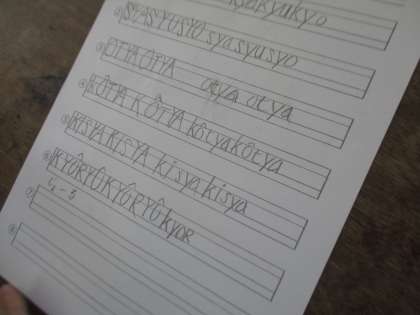 kyakyukyo
② SYASYUSYO syasyusyo
③ OTYA OTYA otya otya
④ KÔTYA KÔTYA kôtyakôtya
⑤ KISYA KISYA kisya kisya
⑥ KYÛRYÔ KYÛRYÔ kyor
⑦ 4-5
⑧